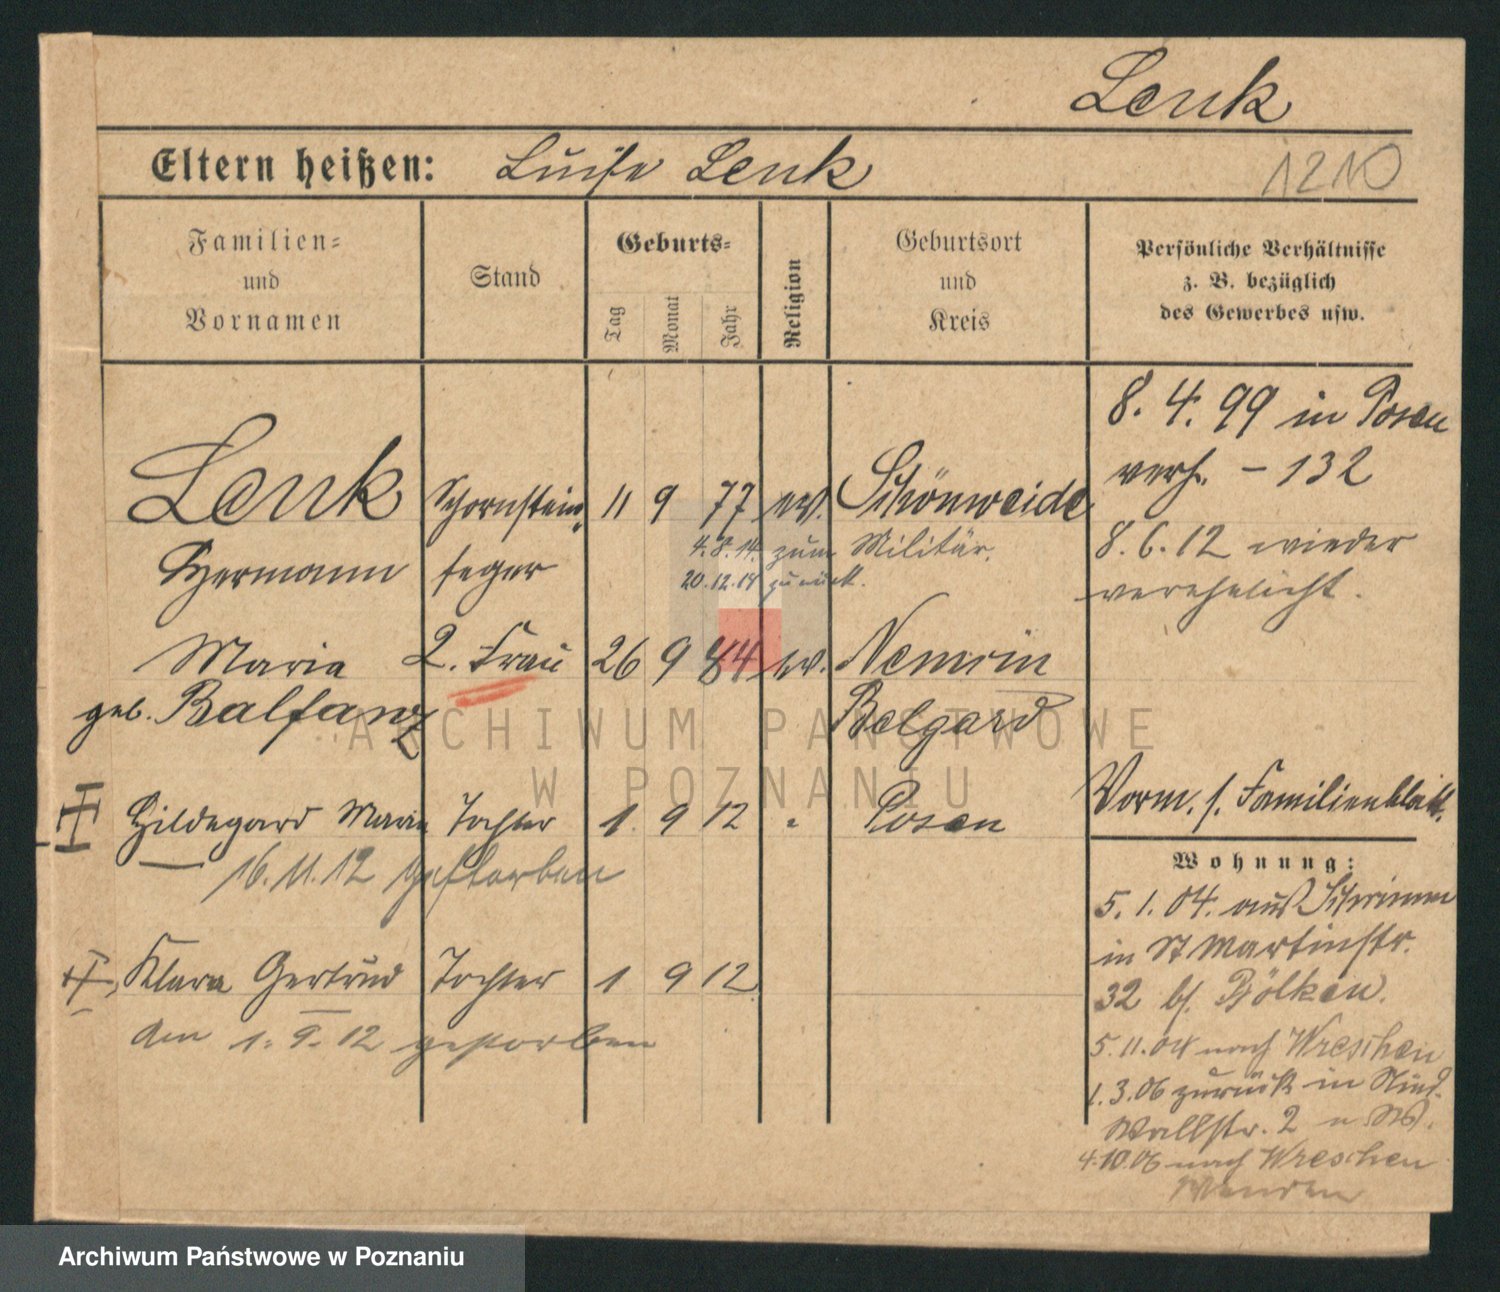 Lenk
Eltern heißen: Luise Lenk
1210
Familien-
und
Vornamen
Stand
Geburts-
Tag
Monat
Jahr
Religion
Geburtsort
und
Kreis
Persönliche Verhältnisse
z. B. bezüglich
des Gewerbes usw.
Lenk Schornstein- 11 9 77 ev. Schönweide
Hermann feger
4.8.14. zum Militär.
20.12.18 zurück.
8. 4. 99 in Posen
verh. - 132
8. 6. 12 wieder
verehelicht.
Maria 2. Frau 26 9 84 ev.
geb. Balfanz Belgard
Hildegard Maria Tochter 1. 9 12 " Posen
16. 11. 12 gestorben
Vorm. s. Familienblatt.
Klara Gertrud Tochter 1 9 12
am 1. 9. 12 gestorben
Wohnung:
5. 1. 04. aus Schrimm
in St Martinstr.
32 bs. Bölken.
5. 11. 04 nach Wreschen
1. 3. 06 zurück in
Wallstr. 2
4.10.06 nach Wreschen
ARCHIWUM PAŃSTWOWE
W POZNANIU
Archiwum Państwowe w Poznaniu